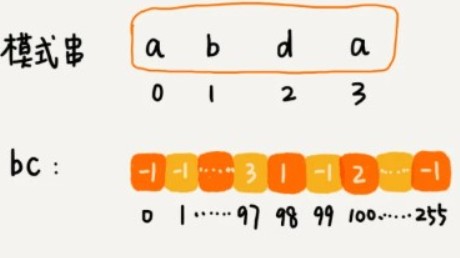 模式串 a b d a
0 1 2 3
bc: -1 -1 …… 3 1 -1 2 …… -1
0 1 …… 97 98 99 100 …… 255